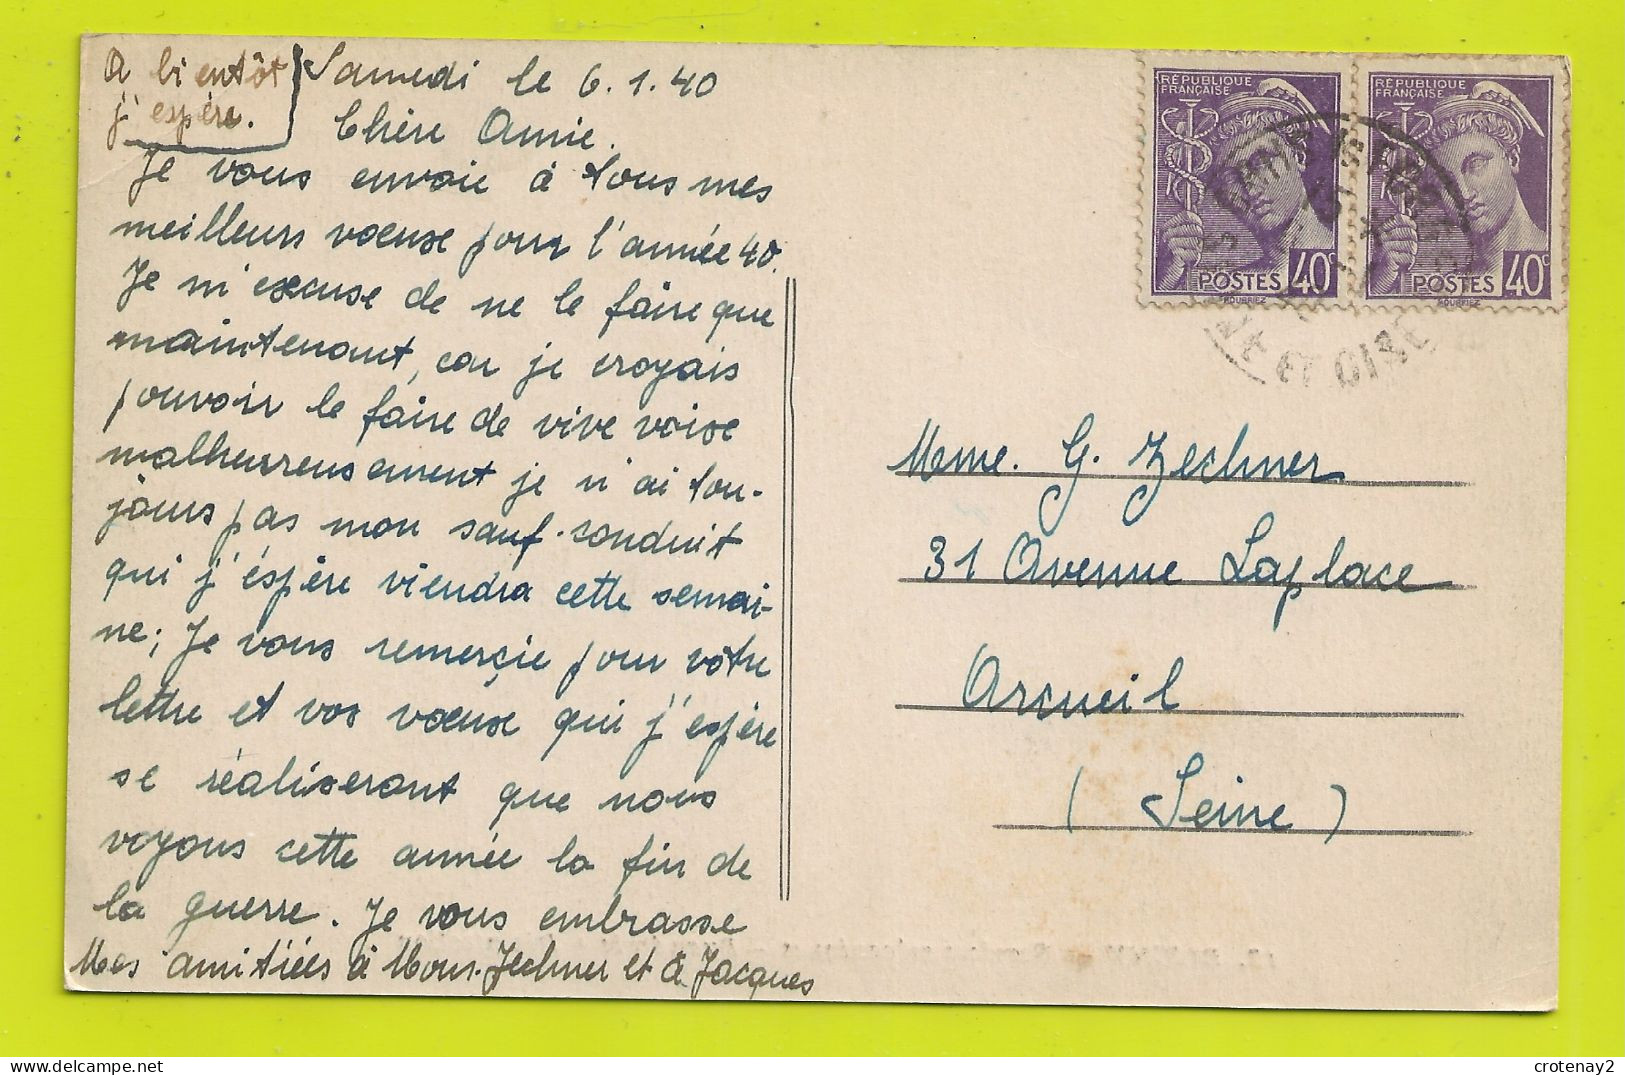 A bientôt
j'espère.
Samedi le 6.1.40
Chère Amie.
Je vous envoie à tous mes
meilleurs voeuse pour l'année 40.
Je m'excuse de ne le faire que
maintenant, car je croyais
pouvoir le faire de vive voise
malheureusement je n'ai tou-
jours pas mon sauf-conduit
qui j'éspère viendra cette semai-
ne; Je vous remerçie pour vôtre
lettre et vos voeuse qui j'espère
se réaliseront que nous
voyons cette année la fin de
la guerre. Je vous embrasse
Mes amitiées à Mour. Zechner et à Jacques
RÉPUBLIQUE
FRANÇAISE
POSTES 40c
RÉPUBLIQUE
FRANÇAISE
POSTES 40c
ET OISE
Meme. G. Zechner
31 Avenue Laplace
Arcueil
(Seine)
crotenay2